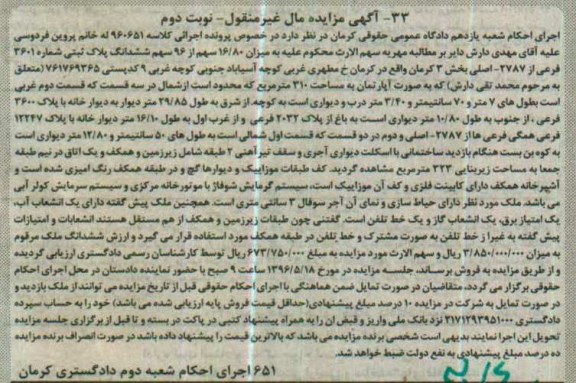 ۳۳- آگهی مزایده مال غیرمنقول- نوبت دوم
اجرای احکام شعبه یازدهم دادگاه عمومی حقوقی کرمان در نظر دارد در خصوص پرونده اجرائی کلاسه ۹۶۰۶۵۱ له خانم پروین فردوسی
علیه آقای مهدی دارش دایر بر مطالبه مهریه سهم الارث محکوم علیه به میزان ۱۶/۸۰ سهم از ۹۶ سهم ششدانگ پلاک ثبتی شماره ۳۶۰۱
فرعی از ۲۷۸۷- اصلی بخش ۳ کرمان واقع در کرمان خ مطهری غربی کوچه آسیاباد جنوبی کوچه غربی ۹ کدپستی ۷۶۱۷۶۹۳۶۵ (متعلق
به مرحوم محمد تقی دارش) که به صورت آپارتمان به مساحت ۳۱۰ مترمربع که محدود است ازشمال در سه قسمت که قسمت دوم غربی
است بطول های ۷ متر و ۷۰ سانتیمتر و ۳/۴۰ متر درب و دیواری است به کوچه. از شرق به طول ۲۹/۸۵ متر دیوار به دیوار خانه با پلاک ۳۶۰۰
فرعی ، از جنوب به طول ۱۰/۸۰ متر دیواری است به باغ از پلاک ۲۰۳۲ فرعی و از غرب اول به طول ۱۶/۱۰ متر دیوار خانه با پلاک ۱۲۲۴۷
فرعی همگی فرعی ها از ۲۷۸۷- اصلی و دوم در دو قسمت که قسمت اول شمالی است به طول های ۵۰ سانتیمتر و ۱۲/۸۰ متر دیواری است
به کوه بن بست هنگام بازدید ساختمانی با اسکلت دیواری آجری و سقف تیرآهنی ۲ طبقه شامل زیرزمین و همکف و یک اتاق در نیم طبقه
جمعا به مساحت زیربنایی ۳۲۳ مترمربع مشاهده گردید. کف طبقات موزاییک و دیوارها گچ و در طبقه همکف رنگ آمیزی شده است و
آشپزخانه همکف دارای کابینت فلزی و کف آن موزاییک است، سیستم گرمایش شوفاژ با موتورخانه مرکزی و سیستم سرمایش کولر آبی
می باشد. ملک مورد نظر دارای حیاط سازی و نمای آن آجر سوفال ۳ سانتی متری است. همچنین ملک پیش گفته دارای یک انشعاب آب،
یک امتیاز برق، یک انشعاب گاز و یک خط تلفن است. گفتنی چون طبقات زیرزمین و همکف از هم مستقل هستند انشعابات و امتیازات
پیش گفته به غیر از خط تلفن به صورت مشترک و خط تلفن در طبقه همکف مورد استفاده قرار می گیرد و ارزش ششدانگ ملک مرقوم
به میزان ۳/۸۵۰/۰۰۰/۰۰۰ ریال و سهم الارث مورد مزایده به مبلغ ۶۷۳/۷۵۰/۰۰۰ ریال توسط کارشناسان رسمی دادگستری ارزیابی گردیده
و از طریق مزایده به فروش برساند، جلسه مزایده در مورخ ۱۳۹۶/۵/۱۸ ساعت ۹ صبح با حضور نماینده دادستان در محل اجرای احکام
حقوقی برگزار می گردد، متقاضیان در صورت تمایل ضمن هماهنگی با اجرای احکام حقوقی قبل از تاریخ مزایده می توانند از ملک بازدید و
در صورت تمایل به شرکت در مزایده ۱۰ درصد مبلغ پیشنهادی(حداقل قیمت فروش پایه ارزیابی شده می باشد) خود را به حساب سپرده
دادگستری ۲۱۷۱۲۹۳۹۵۱۰۰۰ نزد بانک ملی واریز و قبض ان را به همراه پیشنهاد کتبی در پاکت در بسته و تا قبل از برگزاری جلسه مزایده
تحویل این اجرا نمایند بدیهی است شخصی برنده مزایده می باشد که بالاترین قیمت را پیشنهاد داده باشد در صورت انصراف برنده مزایده
ده درصد مبلغ پیشنهادی به نفع دولت ضبط خواهد شد.
۶۵۱ اجرای احکام شعبه دوم دادگستری کرمان